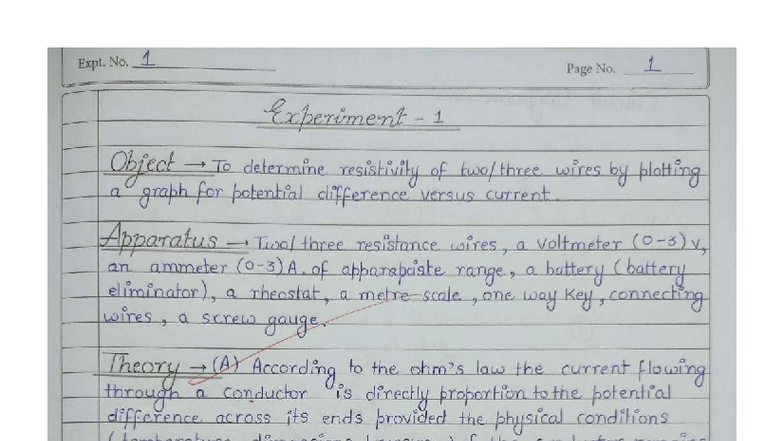 Expt. No. 1
Page No. 1
Experiment - 1
Object → To determine resistivity of two/three wires by plotting
a graph for potential difference versus current.
Apparatus → Two/three resistance wires, a voltmeter (0-3) v,
an ammeter (0-3)A. of apparapciate range, a battery (battery
eliminator), a rheostat, a metre scale, one way key, connecting
wires, a screw gauge.
Theory → (A) According to the ohm's law the current flowing
through a conductor is directly proportion to the potential
difference across its ends provided the physical conditions